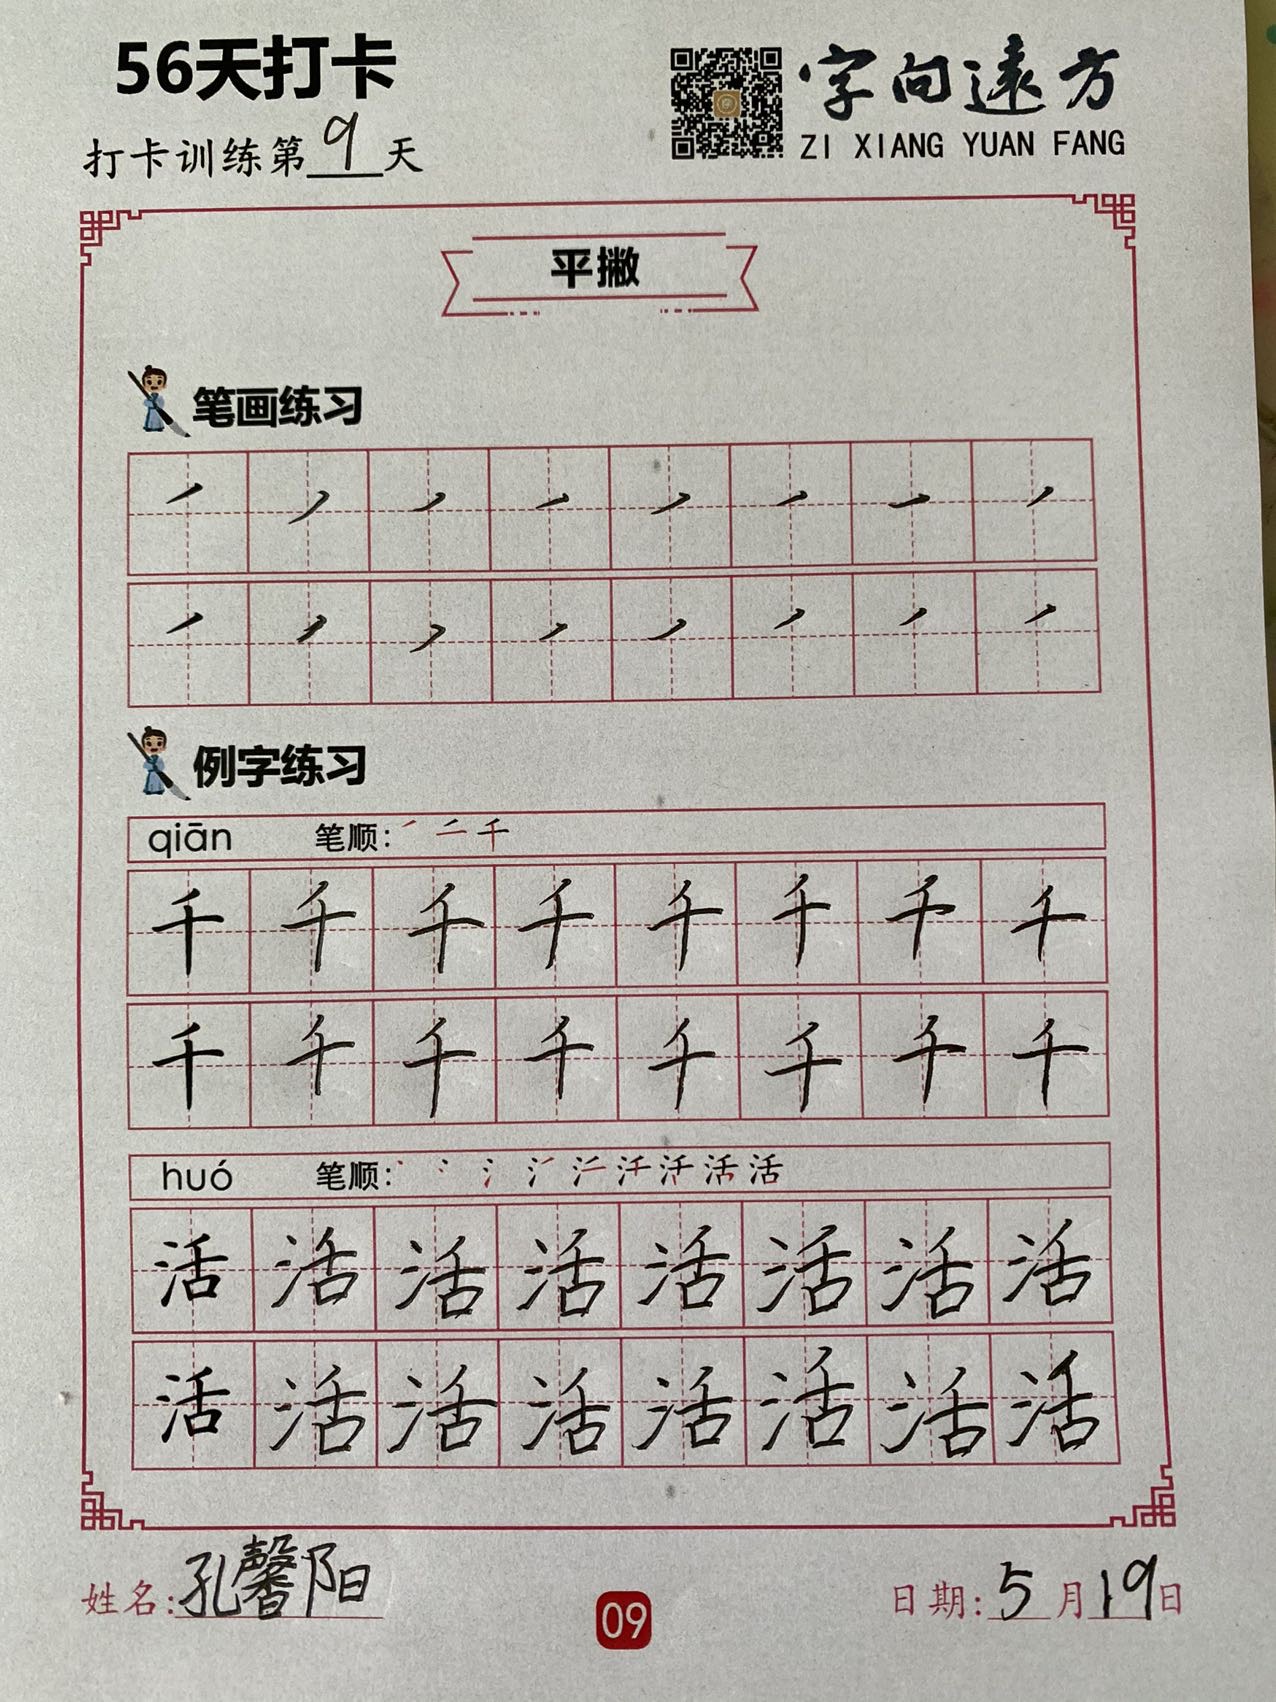 56天打卡
字向远方
ZI XIANG YUAN FANG
打卡训练第9天
平撇
笔画练习
㇒㇒㇒㇒㇒㇒㇒㇒
㇒㇒㇒㇒㇒㇒㇒㇒
例字练习
qiān 笔顺: ㇒ 二 千
千千千千千千千千
千千千千千千千千
huó 笔顺: 活
活活活活活活活活
活活活活活活活活
姓名:孔馨阳
09
日期:5月19日